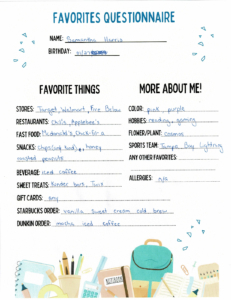 FAVORITES QUESTIONNAIRE
NAME: Samantha Harris
BIRTHDAY:
FAVORITE THINGS
MORE ABOUT ME!
STORES: Target, Walmart, Five Below
RESTAURANTS: Chilis, Applebee's
FAST FOOD: McDonald's, Chick-fil-a
SNACKS: honey
roasted peanuts
BEVERAGE: Iced coffee
SWEET TREATS: Kinder bars, Twix
GIFT CARDS: any
STARBUCKS ORDER: vanilla sweet cream cold brew
DUNKIN ORDER: mocha iced coffee
COLOR: pink, purple
HOBBIES: reading, gaming
FLOWER/PLANT: cosmos
SPORTS TEAM: Tampa Bay Lightning
ANY OTHER FAVORITES:
ALLERGIES: n/a